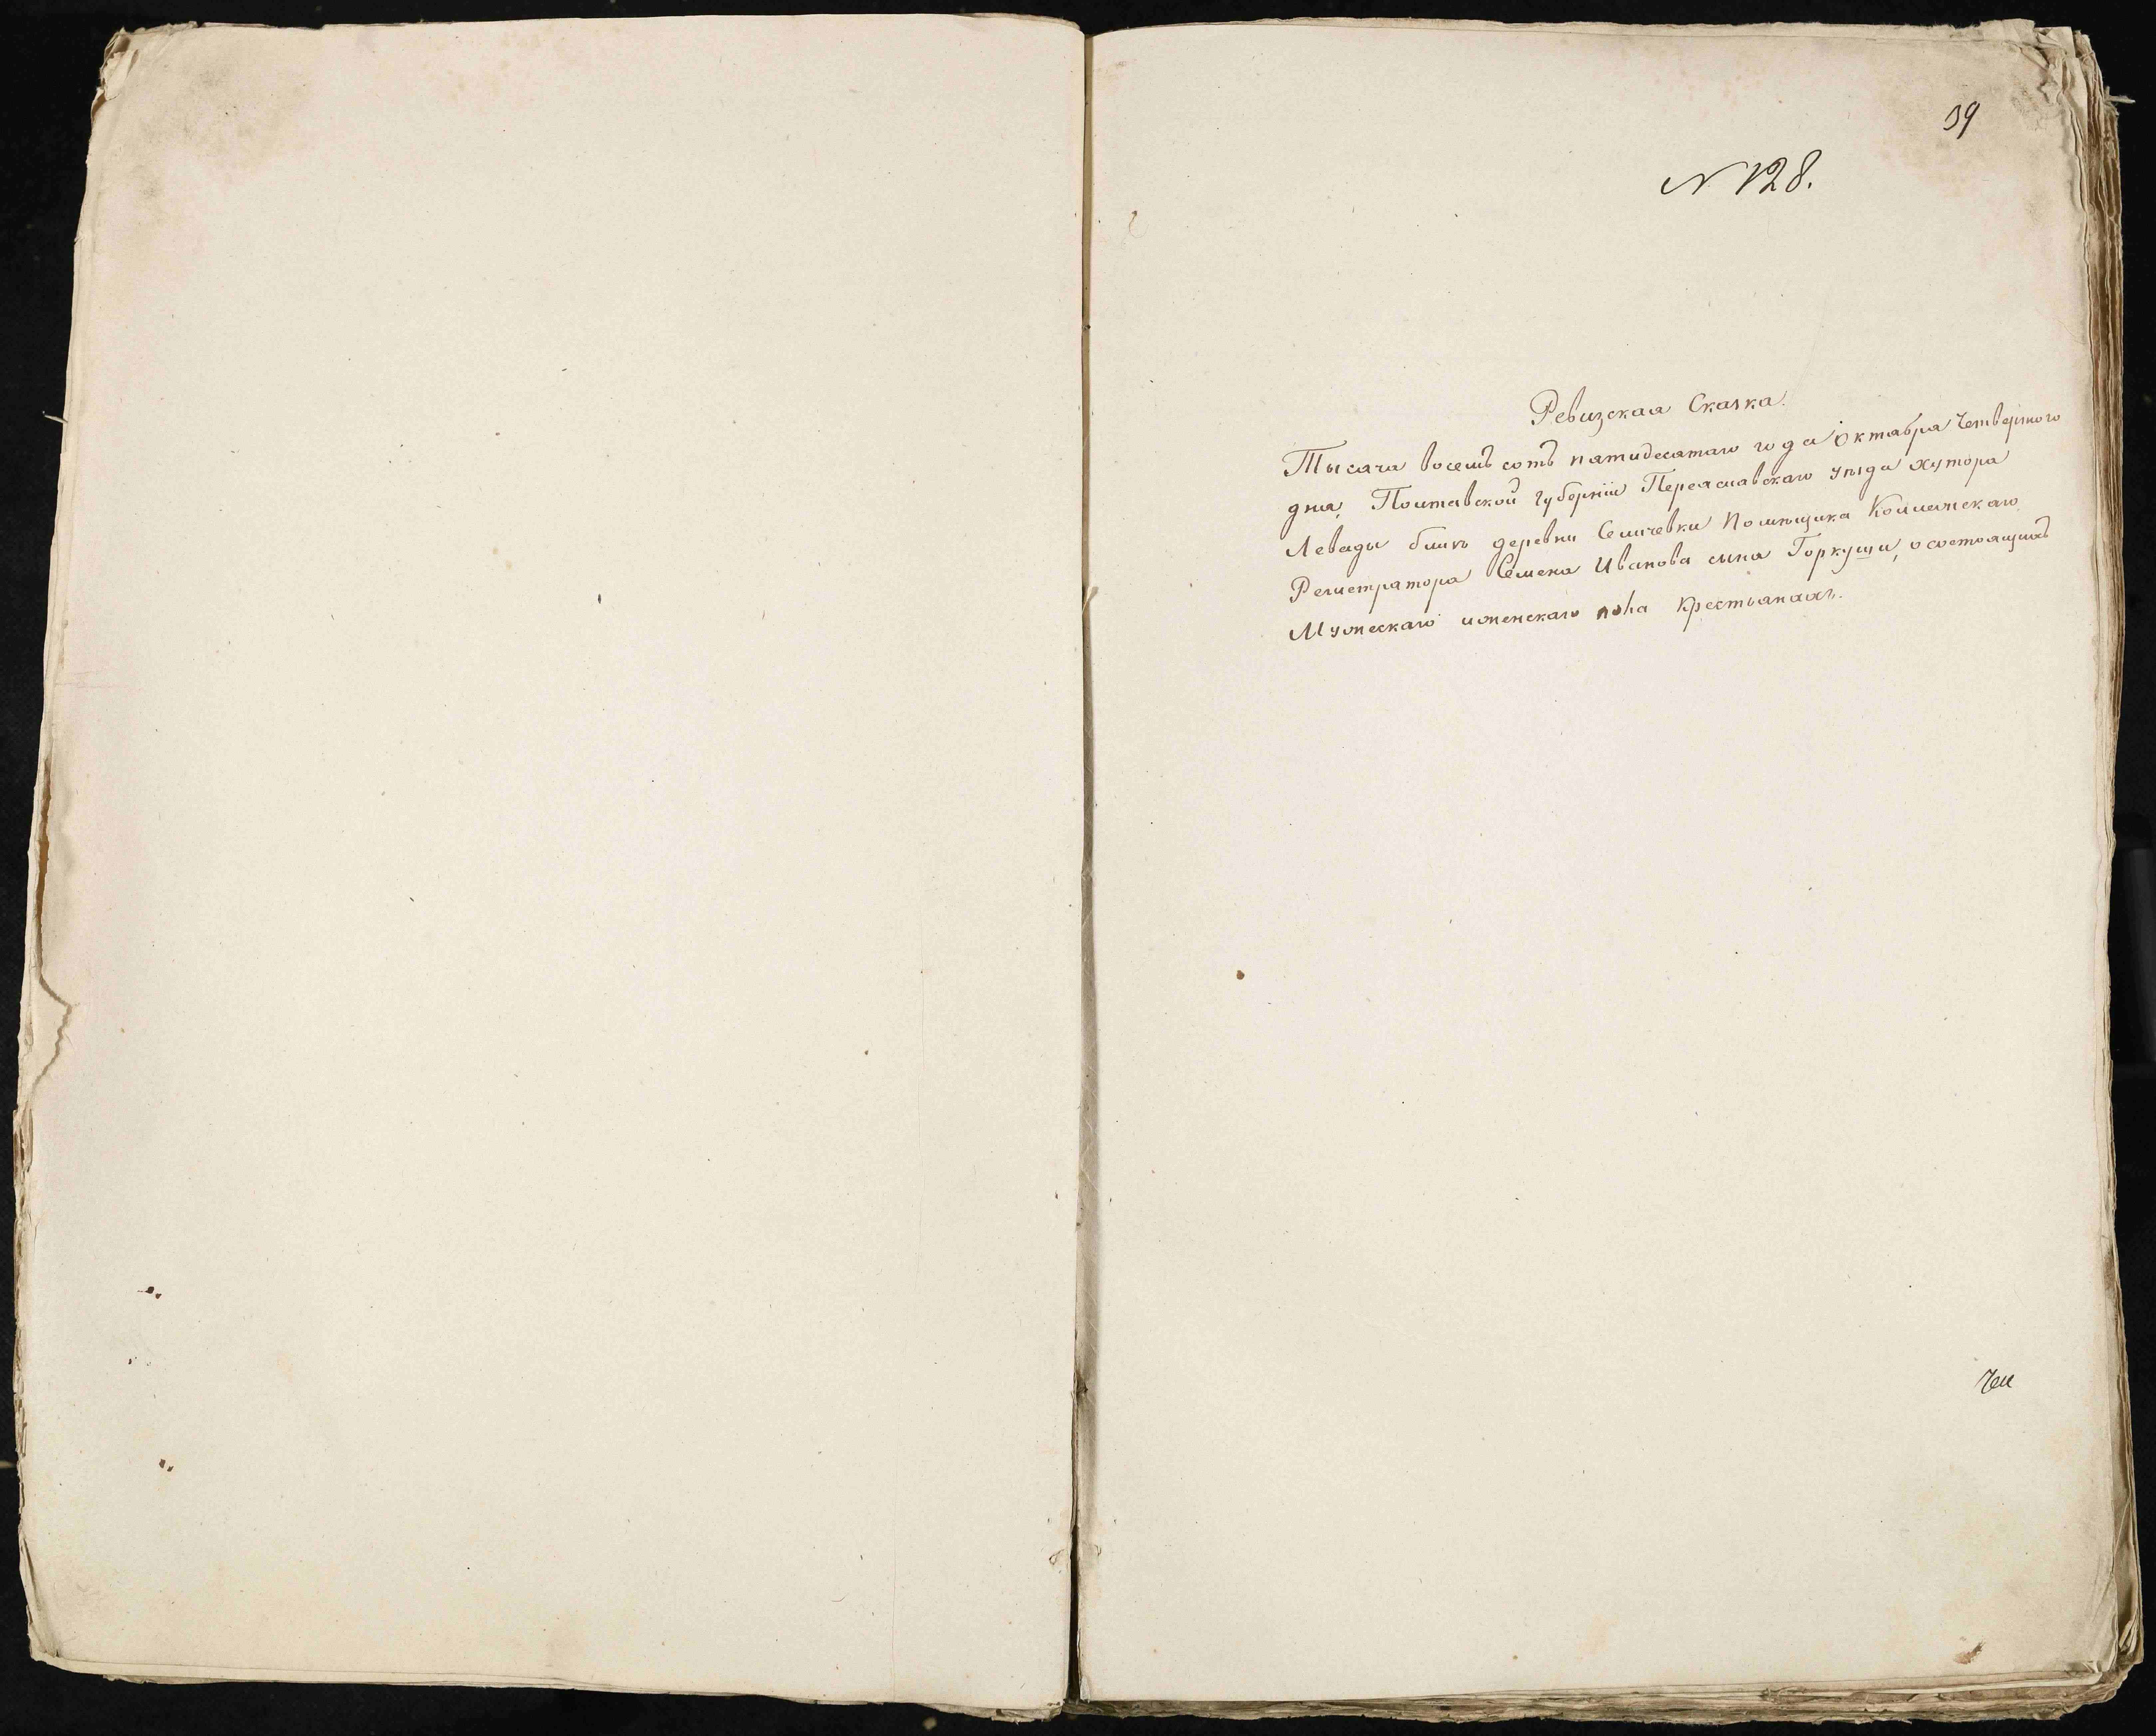 39
N 128.
Ревизская Сказка.
Тысяча восемъ сотъ пятидесятаго года Октября Четвертого
дня, Полтавской губерніи Переяславскаго уѣзда хутора
Левады близъ деревни Семичевки Помѣщика Коллежскаго
Регистратора Семена Иванова сына Горкуши, о состоящихъ
Мужескаго и женскаго пола Крестьянахъ.